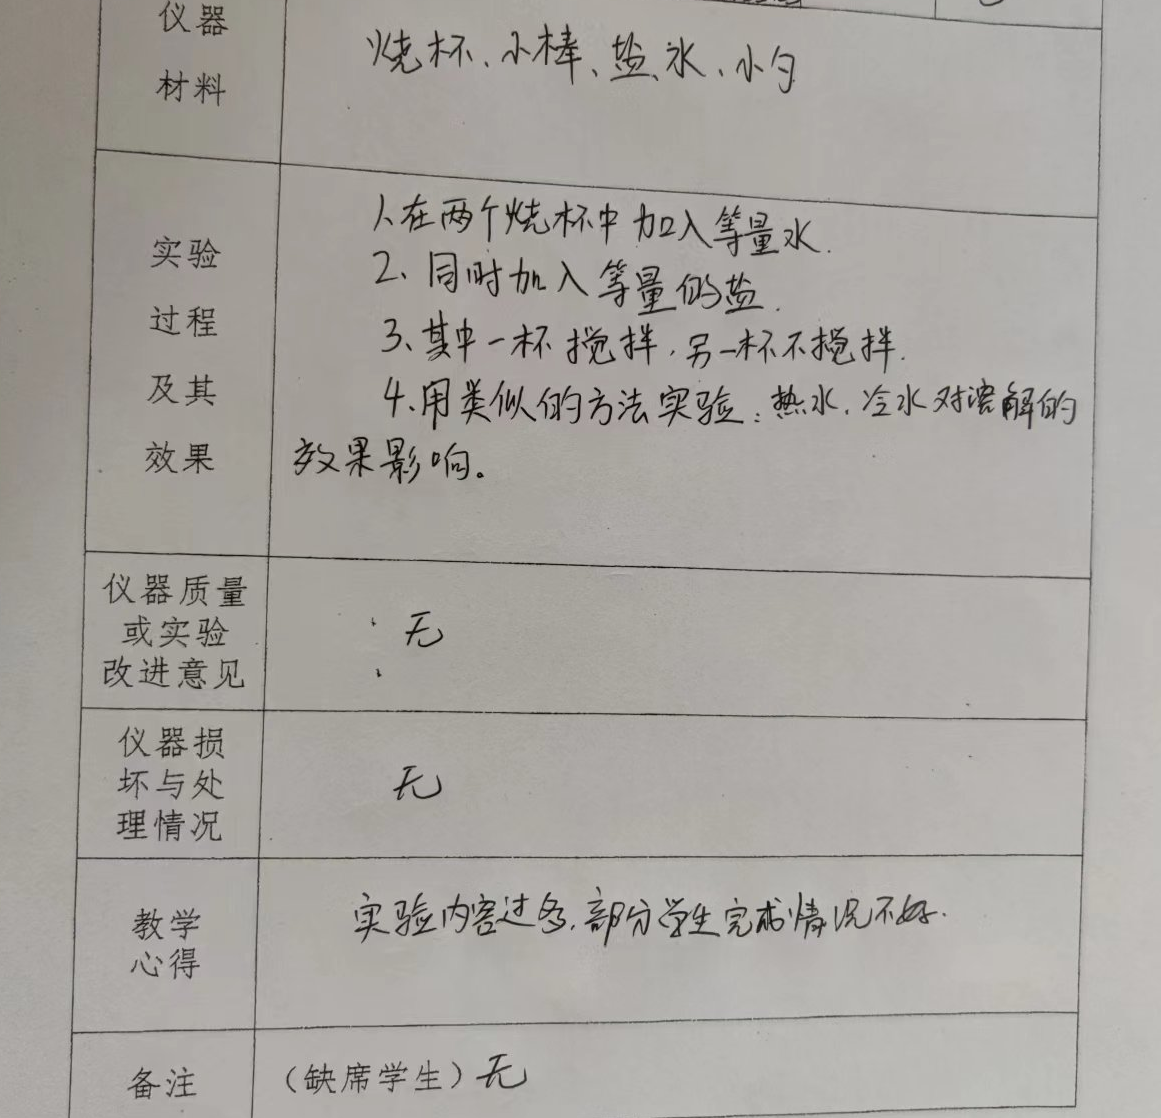 仪器
材料
烧杯、小棒、盐、水、小勺
实验
过程
及其
效果
1、在两个烧杯中加入等量水.
2、同时加入等量的盐.
3、其中一杯搅拌,另一杯不搅拌.
4、用类似的方法实验:热水、冷水对溶解的
效果影响。
仪器质量
或实验
改进意见
无
仪器损
坏与处
理情况
无
教学
心得
实验内容过多,部分学生完成情况不好.
备注
(缺席学生)无